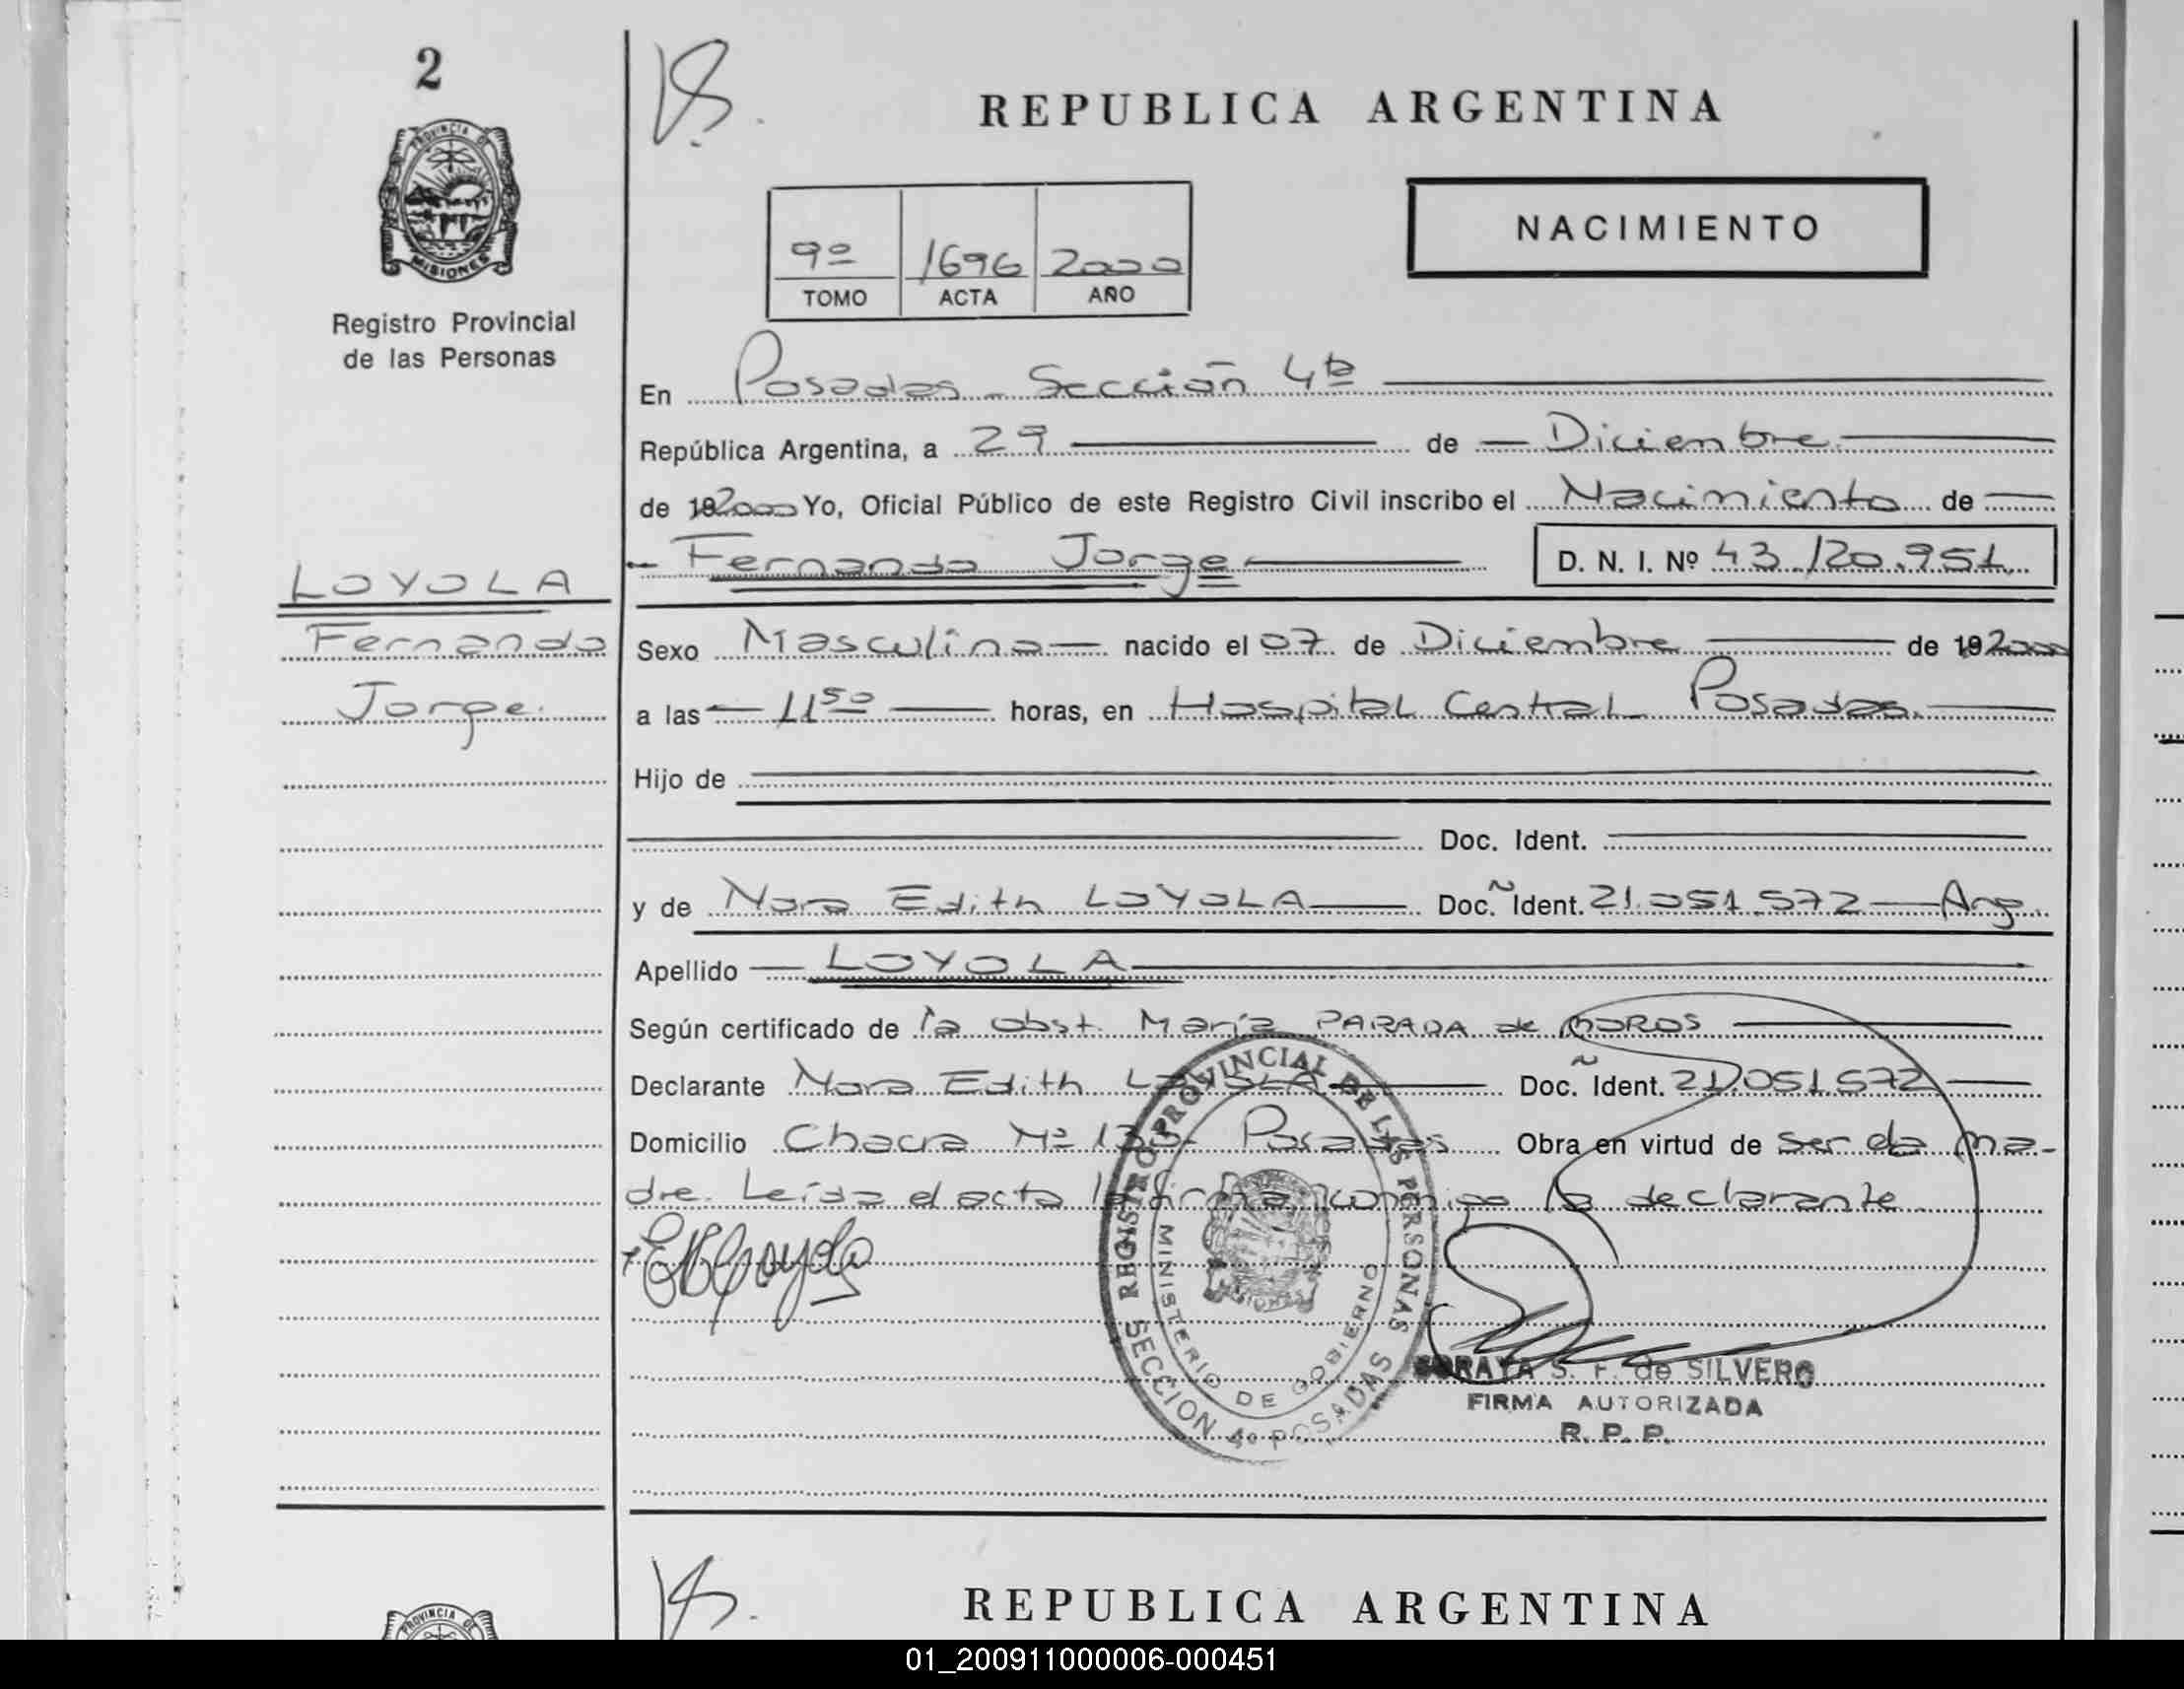 2
PROVINCIA DE
MISIONES
Registro Provincial
de las Personas
REPUBLICA ARGENTINA
NACIMIENTO
9º 1696 2000
TOMO ACTA AÑO
En Posadas - Sección 4ta
República Argentina, a 29 de Diciembre
de 192000 Yo, Oficial Público de este Registro Civil inscribo el Nacimiento de
Fernando Jorge D. N. I. Nº 43.120.951
LOYOLA
Fernando
Jorge.
Sexo Masculino nacido el 07 de Diciembre de 192000
a las 11 50 horas, en Hospital Central Posadas.
Hijo de
Doc. Ident.
y de Nora Edith LOYOLA Doc. Ident. 21.051.572 Arg.
Apellido LOYOLA
Según certificado de la obst. María PARADA de MOROS
Declarante Nora Edith LOYOLA Doc. Ident. 21.051.572
Domicilio Chacra Nº 133- Posadas Obra en virtud de ser la ma-
dre. Leída el acta la firma conmigo la declarante.
REGISTRO PROVINCIAL DE LAS PERSONAS
MINISTERIO DE GOBIERNO
SECCION 4º POSADAS
SORAYA S. F. de SILVERO
FIRMA AUTORIZADA
R. P. P.
PROVINCIA DE
REPUBLICA ARGENTINA
01_200911000006-000451